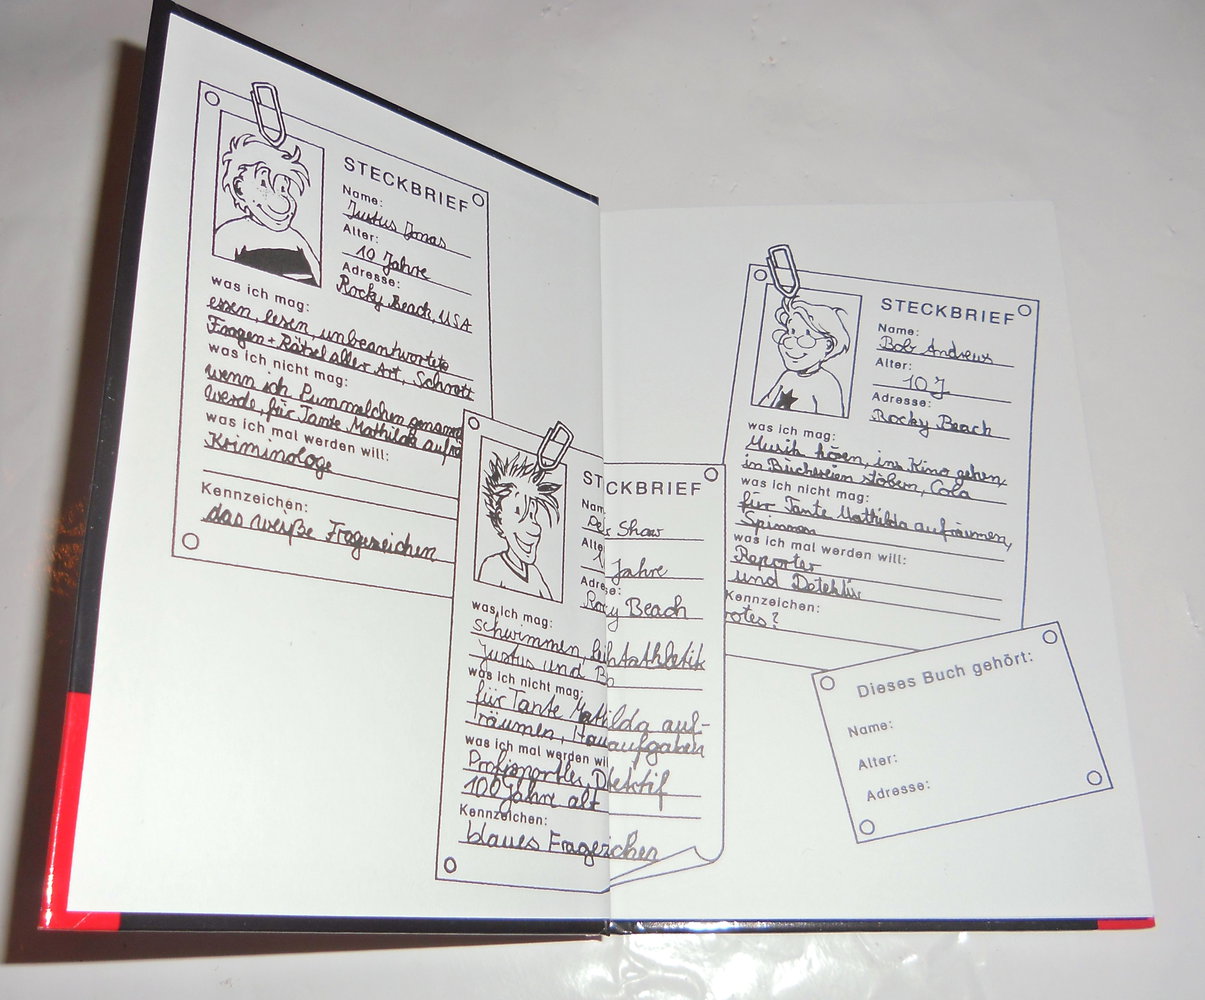 STECKBRIEF
Name:
Justus Jonas
Alter:
10 Jahre
Adresse:
Rocky Beach, USA
was ich mag:
essen, lesen, unbeantwortete
Fragen + Rätsel aller Art, Schrott
was ich nicht mag:
wenn ich Pummelchen genannt
werde, für Tante Mathilda aufrä
was ich mal werden will:
Kriminologe
Kennzeichen:
das weiße Fragezeichen
STECKBRIEF
Name:
Peter Shaw
Alter:
Jahre
Adresse:
Rocky Beach
was ich mag:
schwimmen, Leichtathletik
Justus und Bo
was ich nicht mag:
für Tante Mathilda auf-
räumen, Hausaufgaben
was ich mal werden will
Profisportler, Detektif
100 Jahre alt
Kennzeichen:
blaues Fragezeichen
STECKBRIEF
Name:
Bob Andrews
Alter:
10 J.
Adresse:
Rocky Beach
was ich mag:
Musik hören, ins Kino gehen,
in Büchereien stöbern, Cola
was ich nicht mag:
für Tante Mathilda aufräumen,
Spinnen
was ich mal werden will:
Reporter
und Detektiv
Kennzeichen:
rotes ?
Dieses Buch gehört:
Name:
Alter:
Adresse: